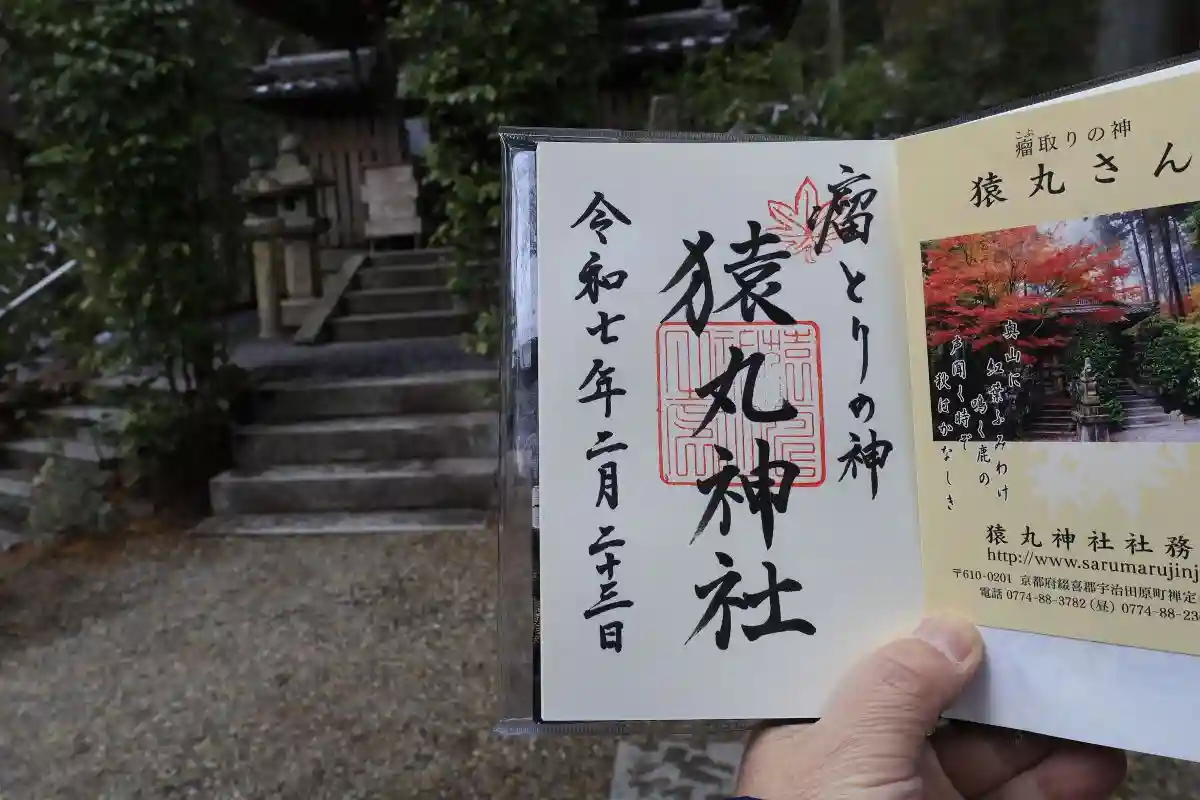 瘤とりの神
猿丸神社
令和七年二月二十三日
こぶ
瘤取りの神
猿丸さん
奥山に
紅葉ふみわけ
鳴く鹿の
声聞く時ぞ
秋はかなしき
猿丸神社社務
http://www.sarumarujinj
〒610-0201 京都府綴喜郡宇治田原町禅定
電話 0774-88-3782(昼) 0774-88-23